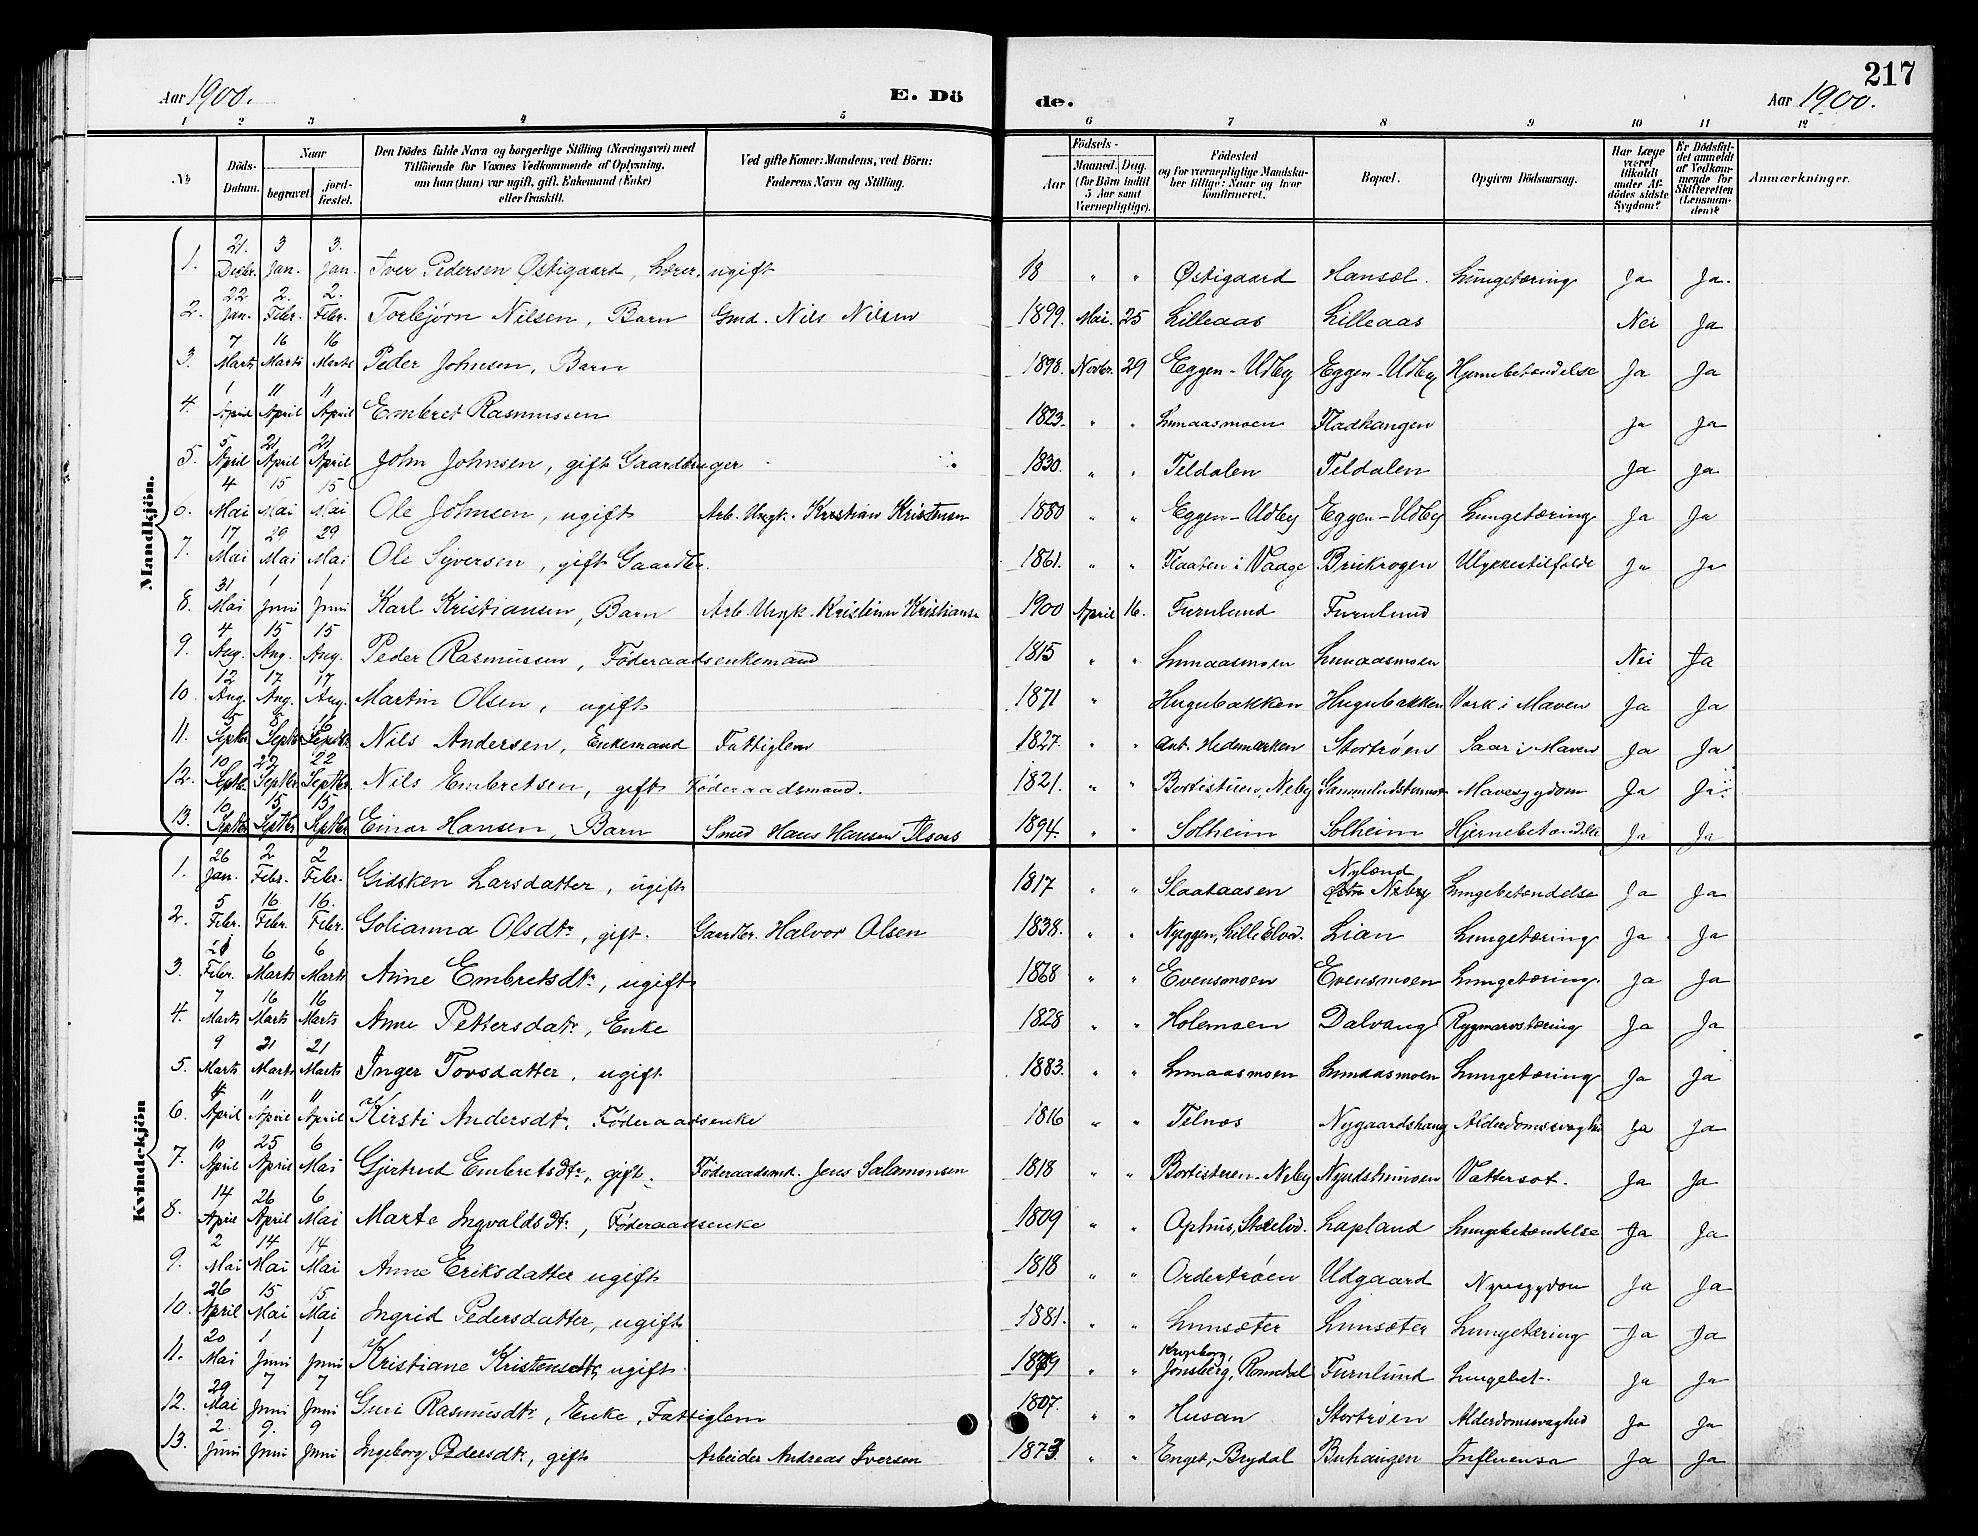 217
Aar 1900. E. Dö de. Aar 1900.
1 2 3 4 5 6 7 8 9 10 11 12
No. Döds-Datum. Naar begravet. jord-fæstet. Den Dödes fulde Navn og borgerlige Stilling (Næringsvei) med Tilföiende for Voxnes Vedkommende af Oplysning, om han (hun) var ugift, gift, Enkemand (Enke) eller fraskilt. Ved gifte Koner: Mandens, ved Börn: Faderens Navn og Stilling. Födsels- Aar Maaned. Dag. (for Börn indtil 5 Aar samt Værnepligtige). Födested og for værnepligtige Mandskaber tillige: Naar og hvor konfirmeret. Bopæl. Opgiven Dödsaarsag. Har Læge været tilkaldt under Afdödes sidste Sygdom? Er Dödsfaldet anmeldt af Vedkommende for Skifteretten (Lensmanden)? Anmærkninger.
Mandkjön.
1. 21. Decbr. 3 Jan. 3. Jan. Iver Pedersen Østigaard, Lærer, ugift 18 " " Østigaard Hansæl. Lungetæring Ja Ja.
2. 22 Jan. 2. Febr. 2. Febr. Torbjørn Nilsen, Barn Gmd. Nils Nilsen 1899. Mai. 25 Lilleaas Lilleaas Nei Ja
3. 7 Marts 16 Marts 16 Marts Peder Johnsen, Barn 1898. Novbr. 29 Eggen-Udby Eggen-Udby Hjernebetændelse Ja Ja
4. 1 April 11 April 11 April Embret Rasmussen 1823. " " Lunaasmoen Fladhangen Ja Ja
5. 5 April 21 April 21 April John Johnsen, gift Gaardbruger 1830. " " Teldalen Teldalen Ja Ja
6. 4 Mai 15 Mai 15 Mai Ole Johnsen, ugift Arb. Ungk. Kristian Kristensen 1880 " " Eggen-Udby Eggen-Udby Lungetæring Ja Ja
7. 17 Mai 29 Mai 29 Mai Ole Syversen, gift Gaardbr. 1861. " " Flaaten i Vaage Brækrogen Ulykkestilfælde Ja Ja
8. 31 Mai 1 Juni 1 Juni Karl Kristiansen, Barn Arb. Ungk. Kristian Kristiansen 1900 April 16. Furulund Furulund
9. 4 Aug. 15 Aug. 15 Aug. Peder Rasmussen, Føderaadsenkemand 1815 " " Lunaasmoen Lunaasmoen Nei Ja
10. 12 Aug. 17 Aug. 17 Aug. Martin Olsen, ugift 1871 " Hugubakken Hugubakken Værk i Maven Ja Ja
11. 5 Septbr. 8 Septbr. 16 Septbr. Nils Andersen, Enkemand Fattiglem 1827. " " Ant. Hedemarken Stortrøen Saar i Maven Ja Ja
12. 10 Septb. 22 Septbr. 22 Septbr. Nils Embretsen, gift Føderaadsmand. 1821. " " Bortistuen, Neby Mavesygdom Ja Ja.
13. 10 Septbr 15 Septbr 15 Septbr Einar Hansen, Barn Smed Hans Hansen Ilsaas 1894. " " Solheim Solheim Hjernebetændelse Ja Ja
Kvindekjön
1. 26 Jan. 2 Febr. 2 Febr. Gidsken Larsdatter, ugift 1817 " " Slaataasen Nyland Østre Neby Lungebetændelse Ja Ja
2. 5 Febr. 16 Febr. 16. Febr. Golianna Olsdtr, gift. Gaardbr. Halvor Olsen 1838. " " Nyeggen, Lille Elvd. Lian Lungetæring Ja Ja
3. Febr. 6 Marts 6 Marts Anne Embretsdtr, ugift 1868 " " Evensmoen Evensmoen Lungetæring. Ja Ja
4. 7 Marts 16 Marts 16 Marts Anne Pettersdatr, Enke 1828 " " Holemoen Dalvang Rygmarvstæring Ja Ja
5. 9 Marts 21 Marts 21 Marts Inger Torsdatter, ugift. 1883. " " Lunaasmoen Lunaasmoen Lungetæring Ja Ja
6. 4 April 11 April 11 April Kirsti Andersdtr, Føderaadsenke 1816 " " Telnæs Nygaardshaug Alderdomssvaghed Ja Ja
7. 10 April 25 April 6 Mai Gjertrud Embretsdtr, gift. Føderaadsmd. Jens Salamonsen 1818 " " Bortistuen-Neby Nyrudshuusen Vattersot. Ja Ja
8. 14 April 26 April 6 Mai Marte Ingvaldsdtr, Føderaadsenke 1809 " " Ophus, Storelvd. Lapland Lungebetændelse Ja Ja
9. 2 Mai 14 Mai 14 Mai Anne Eriksdatter ugift 1818 " " Ordertrøen Udgaard Nyresygdom Ja Ja
10. 26 April 15 Mai 15 Mai Ingrid Pedersdatter, ugift 1881. " " Lunsæter Lunsæter Lungetæring Ja Ja
11. 20 Mai 1 Juni 1 Juni Kristiane Kristensdtr, ugift 1879 " " Jønsberg, Romedal Furulund Lungebet. Ja Ja
12. 29 Mai 7 Juni 7 Juni Guri Rasmusdtr, Enke, Fattiglem 1807. " " Husan Stortrøen Alderdomssvaghed Ja Ja
13. 2. Juni 9. Juni 9 Juni Ingeborg Pedersdtr, gift Arbeider Andreas Iversen 1873 " " Enget, Brydal Buhaugen Influensa Ja Ja